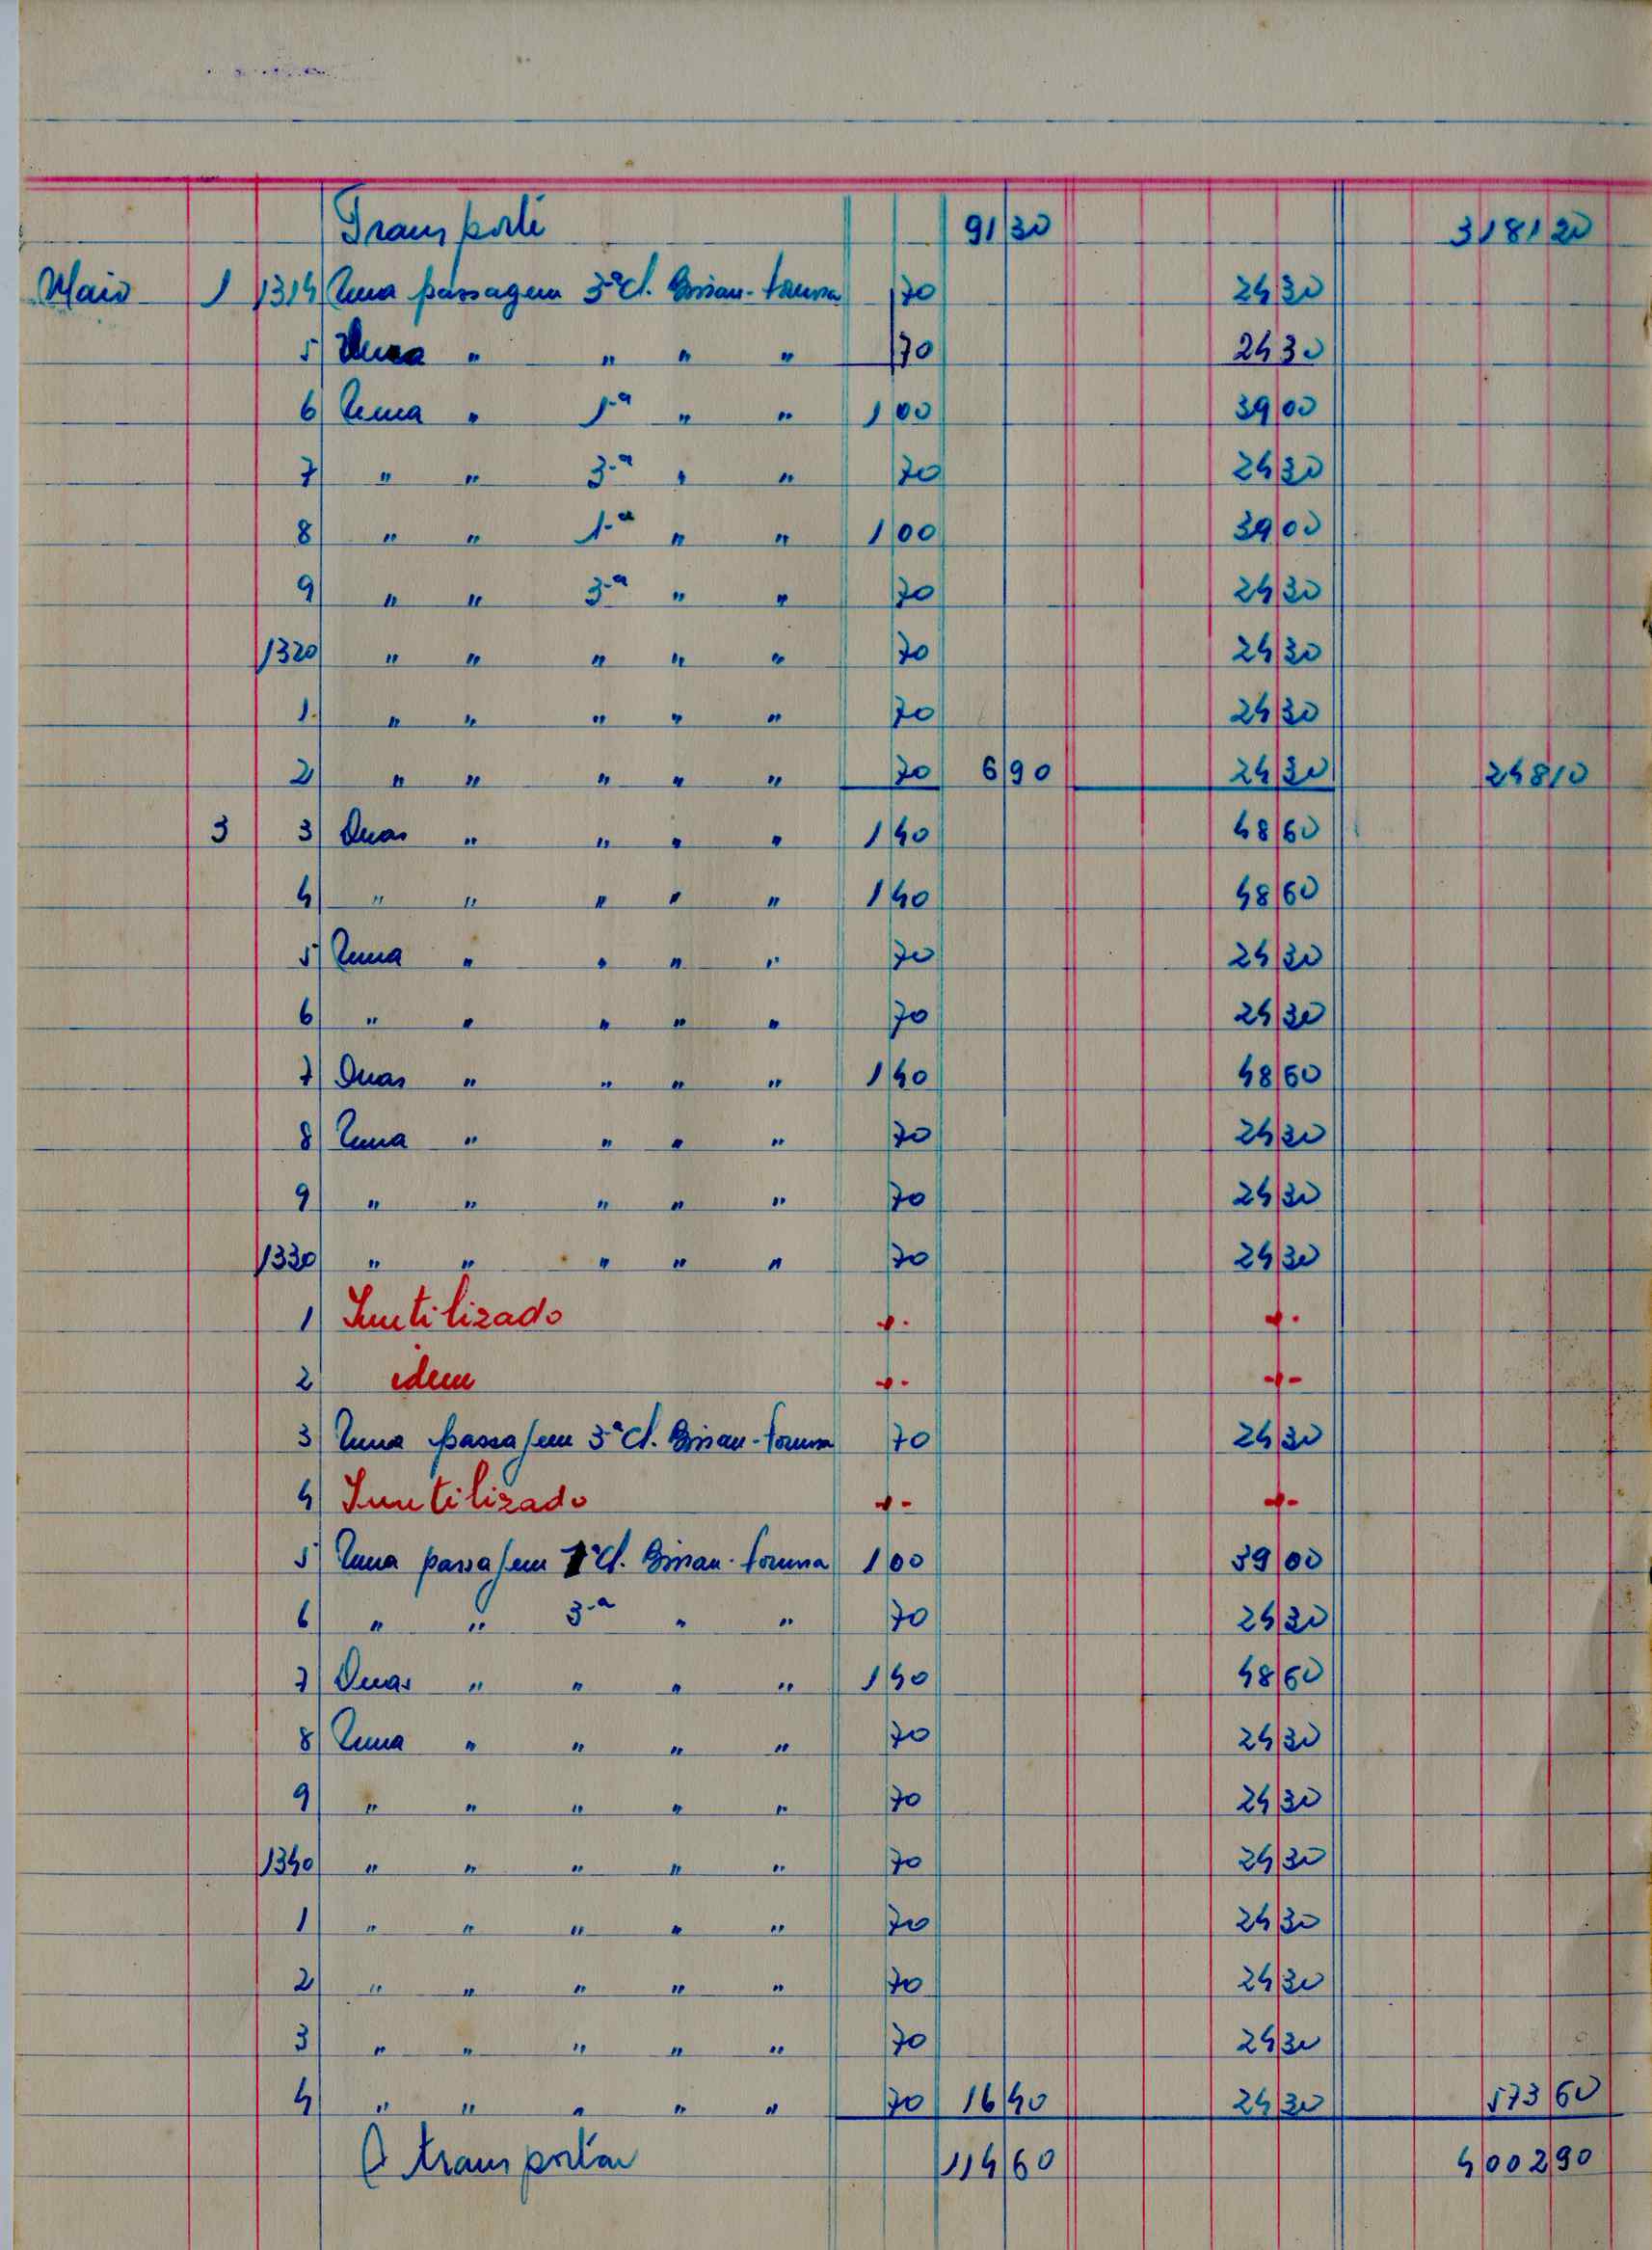 Transporte 91 30 3181 20
Maio 1 1314 Uma passagem 3ª cl. Bissau- 70 24 30
5 Uma " " " " 70 24 30
6 Uma " 1ª " " 1 00 39 00
7 " " 3ª " " 70 24 30
8 " " 1ª " " 1 00 39 00
9 " " 3ª " " 70 24 30
1320 " " " " " 70 24 30
1 " " " " " 70 24 30
2 " " " " " 70 6 90 24 30 248 10
3 3 Duas " " " " 1 40 48 60
4 " " " " " 1 40 48 60
5 Uma " " " " 70 24 30
6 " " " " " 70 24 30
7 Duas " " " " 1 40 48 60
8 Uma " " " " 70 24 30
9 " " " " " 70 24 30
1330 " " " " " 70 24 30
1 Inutilizado
2 idem
3 Uma passagem 3ª cl. Bissau- 70 24 30
4 Inutilizado
5 Uma passagem 1ª cl. Bissau- 1 00 39 00
6 " " 3ª " " 70 24 30
7 Duas " " " " 1 40 48 60
8 Uma " " " " 70 24 30
9 " " " " " 70 24 30
1340 " " " " " 70 24 30
1 " " " " " 70 24 30
2 " " " " " 70 24 30
3 " " " " " 70 24 30
4 " " " " " 70 16 40 24 30 573 60
A transportar 114 60 4002 90